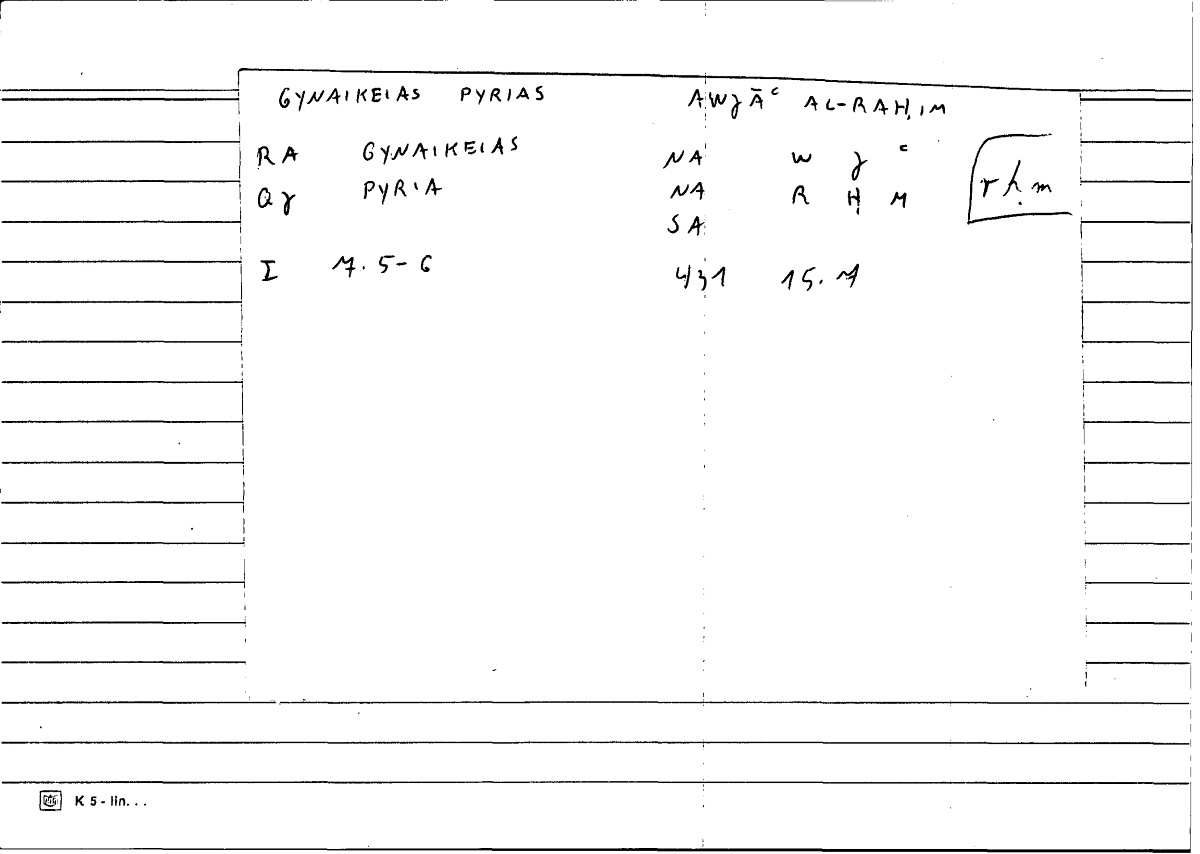 GYNAIKEIAS PYRIAS AWJĀʿ AL-RAḤIM
RA GYNAIKEIAS NA W J ʿ
QJ PYRIA NA R Ḥ M
rḥm
SA
I 7. 5-6 431 15. 7
K 5 - lin. . .